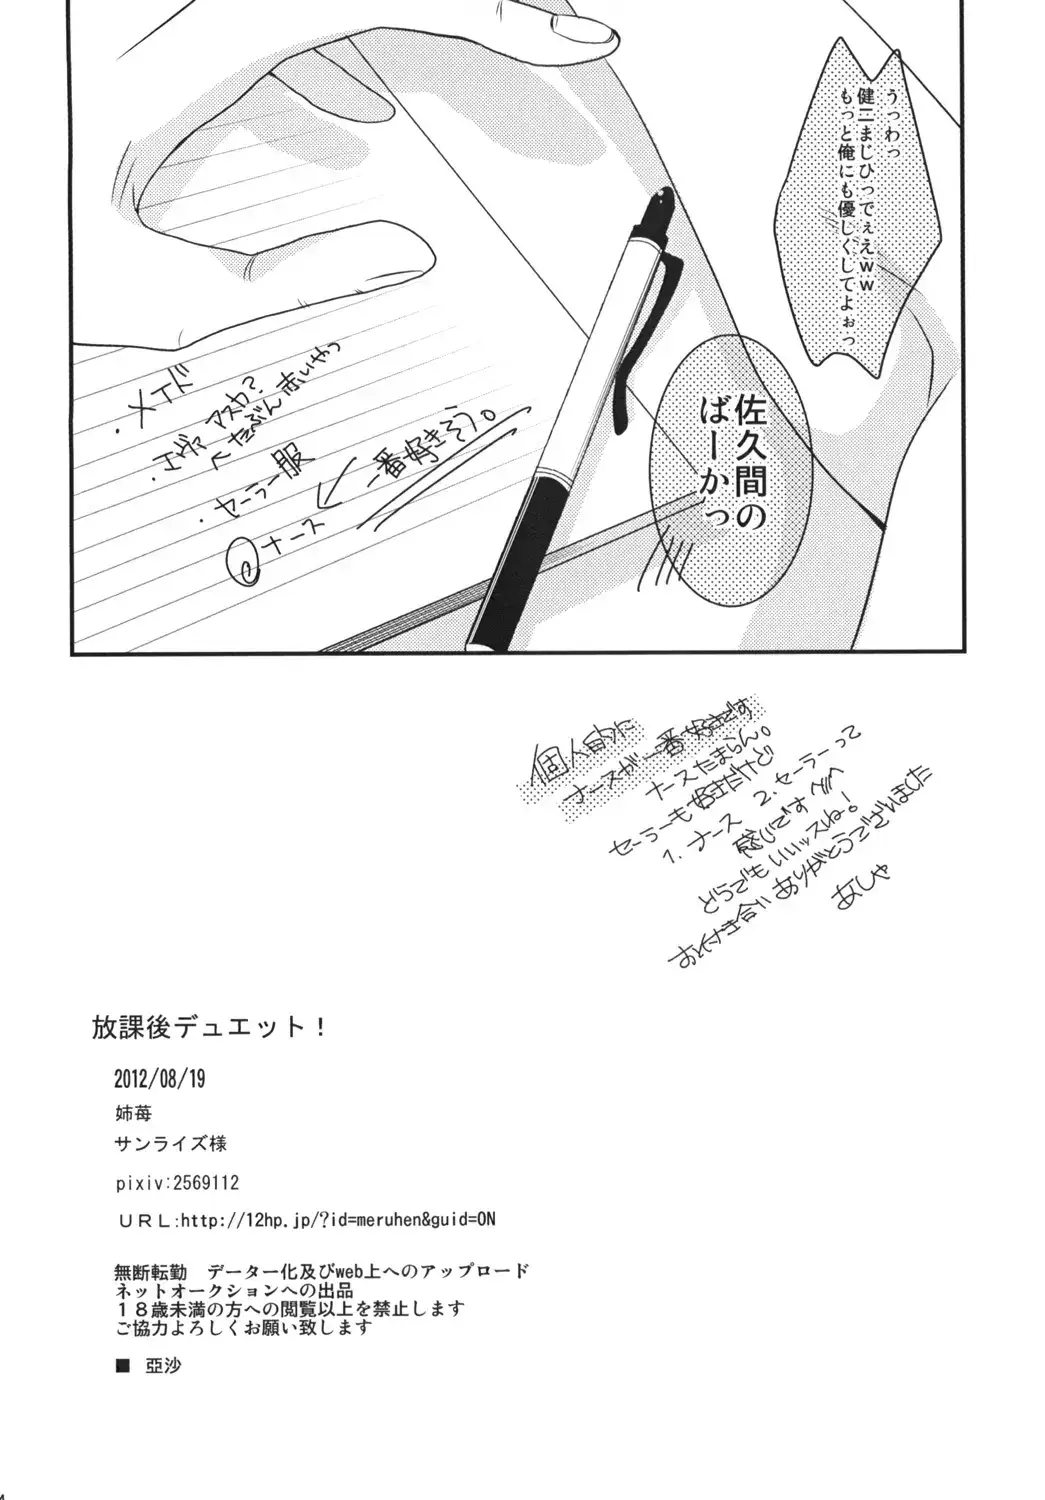 うっわっ
健二まじひってぇえｗｗ
もっと俺にも優しくしてよぉっ
佐久間の
ばーかっ
・メイド
・エヴァ アスカ?
たぶん赤いやつ
・セーラー服
ナース ← 一番好きそう。
個人的に
ナースが一番好きです
ナースたまらん。
セーラーも好きだけど
1.ナース 2.セーラーって
感じです
どうでもいいッスね!
お付き合いありがとうございました
あしゃ
放課後デュエット！
2012/08/19
姉苺
サンライズ様
pixiv:2569112
ＵＲＬ:http://12hp.jp/?id=meruhen&guid=ON
無断転勤　データー化及びweb上へのアップロード
ネットオークションへの出品
１８歳未満の方への閲覧以上を禁止します
ご協力よろしくお願い致します
■　亞沙